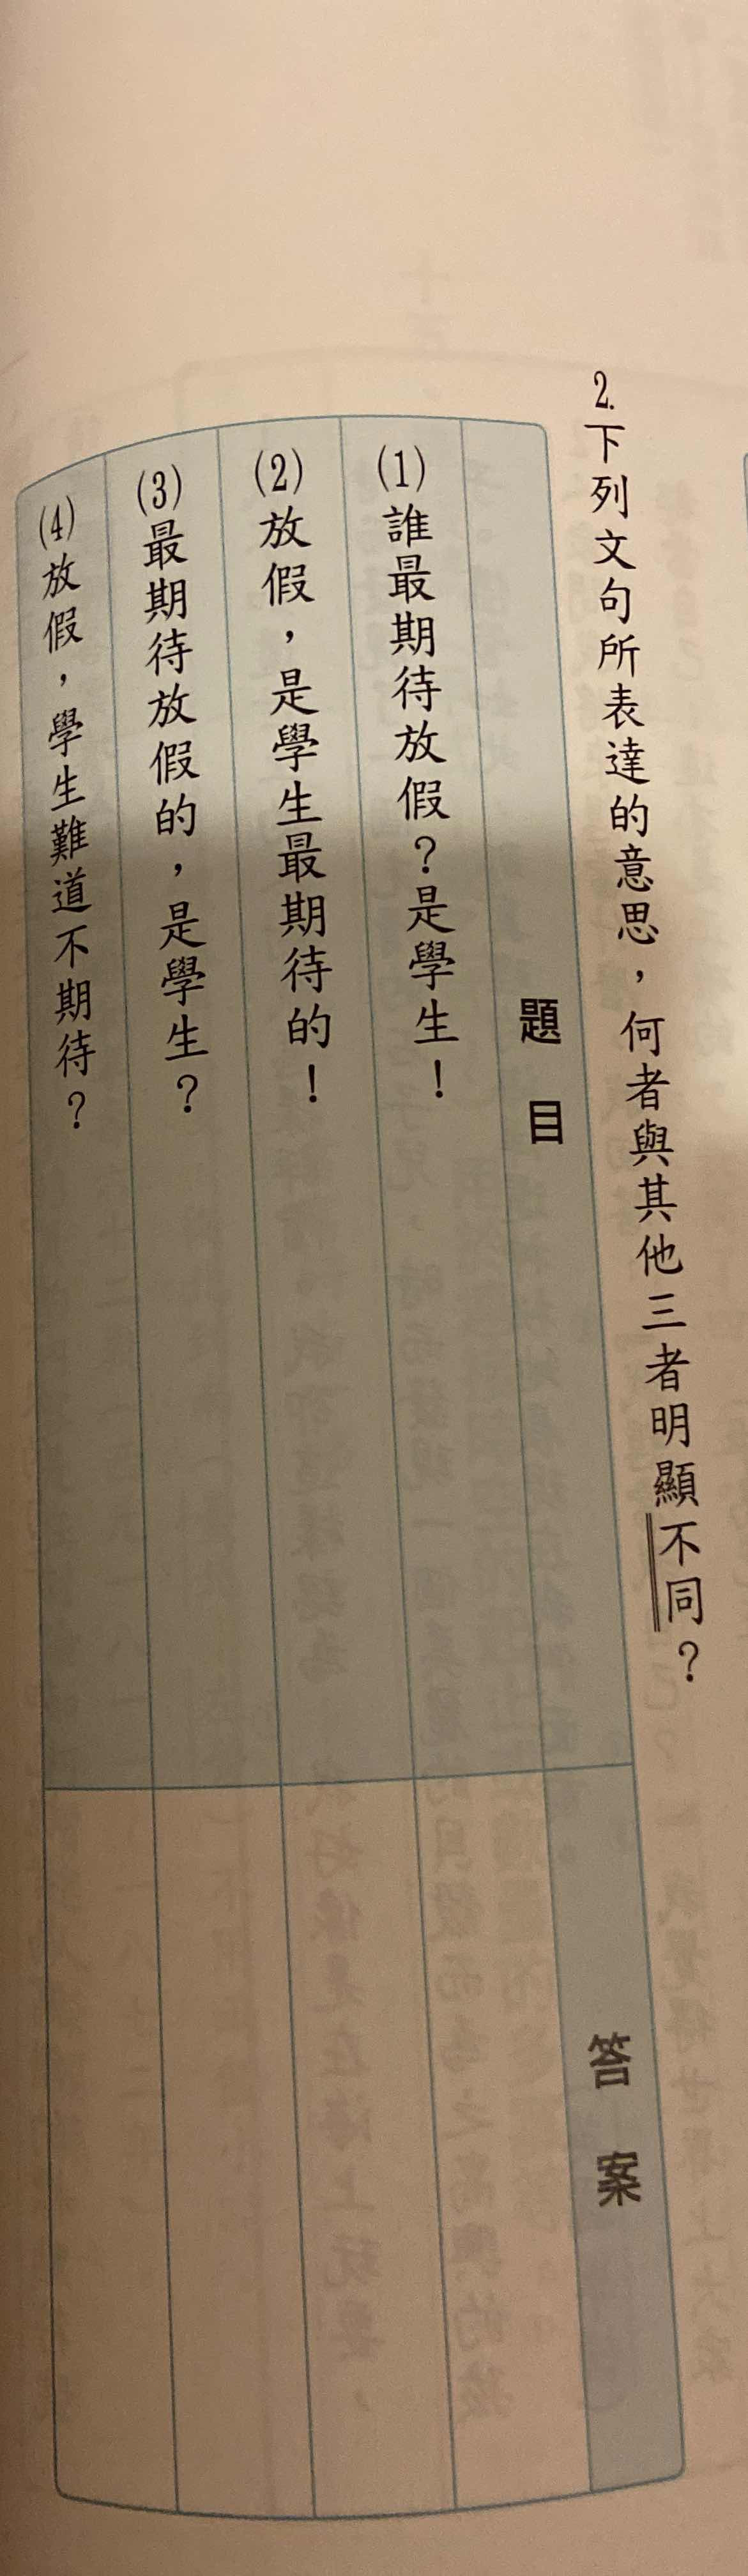 2.下列文句所表達的意思，何者與其他三者明顯不同？
題目
答案
(1)誰最期待放假？是學生！
(2)放假，是學生最期待的！
(3)最期待放假的，是學生？
(4)放假，學生難道不期待？